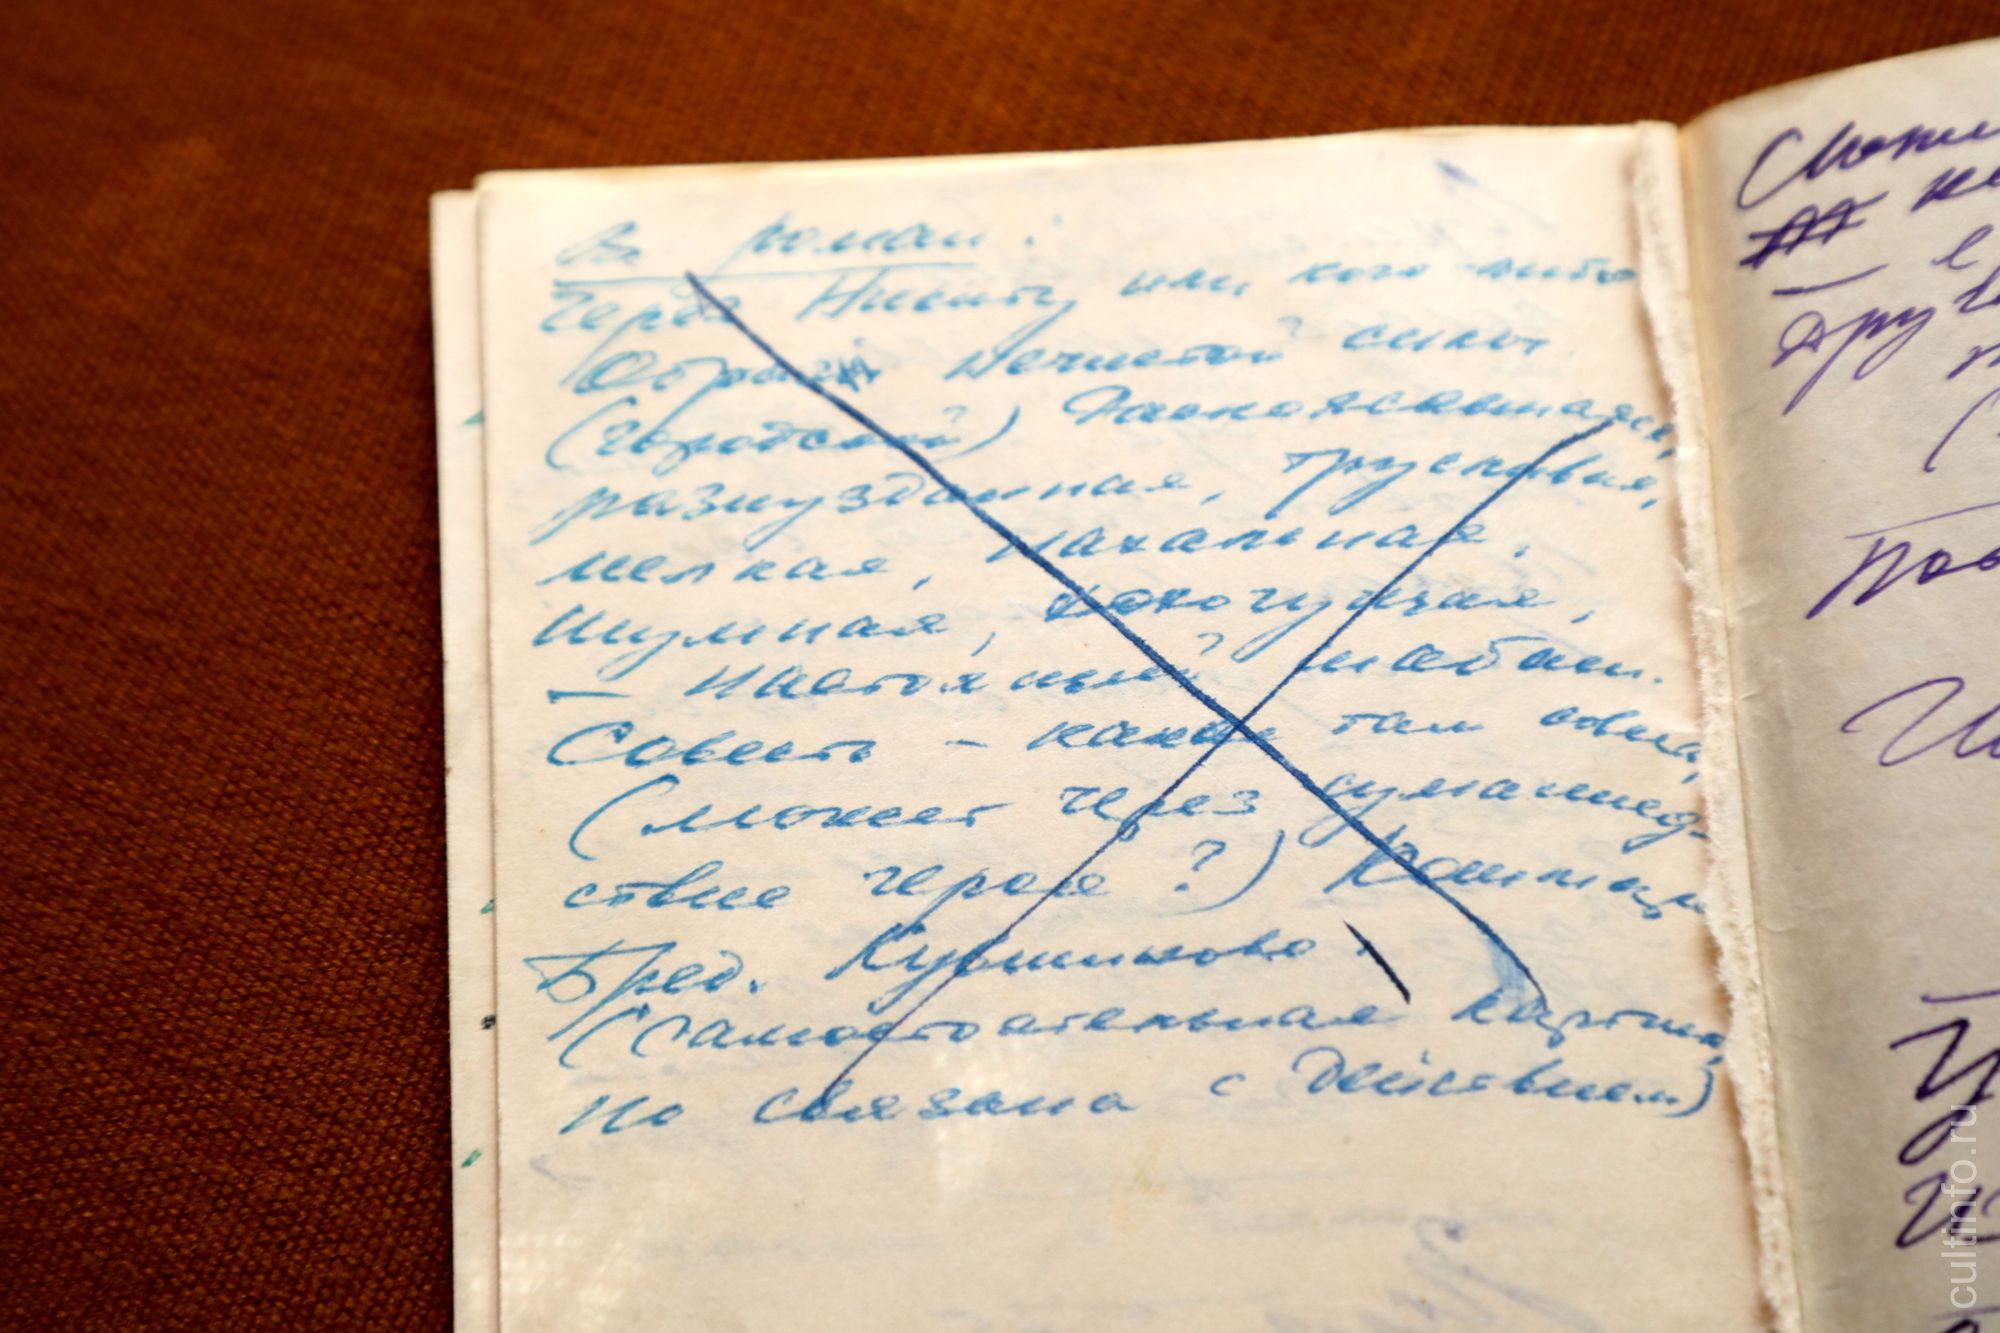 В роман:
Через Никиту или кого-либо
Образ нечистой силы.
(городской) Распоясавшаяся,
разнузданная, трусливая,
мелкая, нахальная,
шумная, хохочущая,
– настоящий шабаш.
Совесть – какая там совесть,
(может через сумасшед-
ствие героя?)
Бред.
(Самостоятельная картина,
но связана с действием)
cultinfo.ru